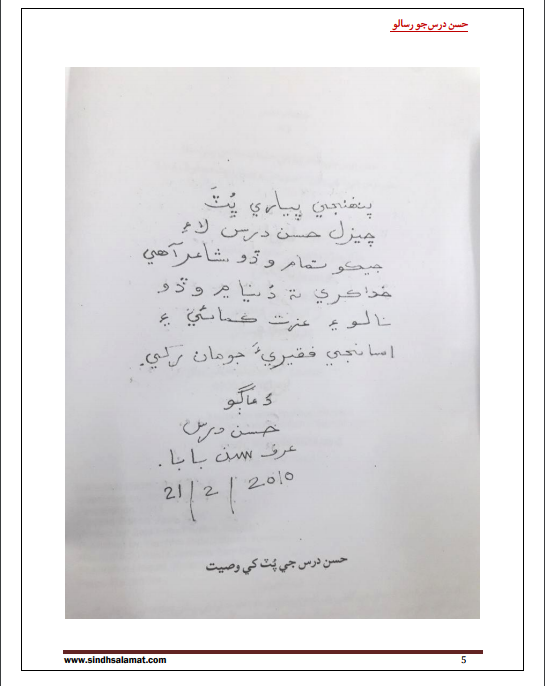 حسن درس جو رسالو
پنھنجي پياري پُٽَ
چيزل حسن درس لاءِ
جيڪو تمام وڏو شاعر آهي
خدا ڪري تہ دُنيا ۾ وڏو
نالو ۽ عزت ڪمائي ۽
اسانجي فقيريءَ جو مان رکي.
دُعاگو
حسن درس
عرف سن بابا.
21/2/2010
حسن درس جي پُٽ کي وصيت
www.sindhsalamat.com 5